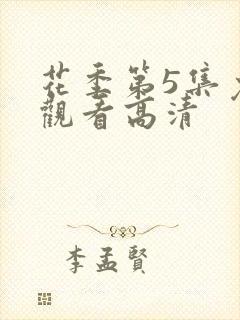 花季第5集
觀看高清
李孟賢